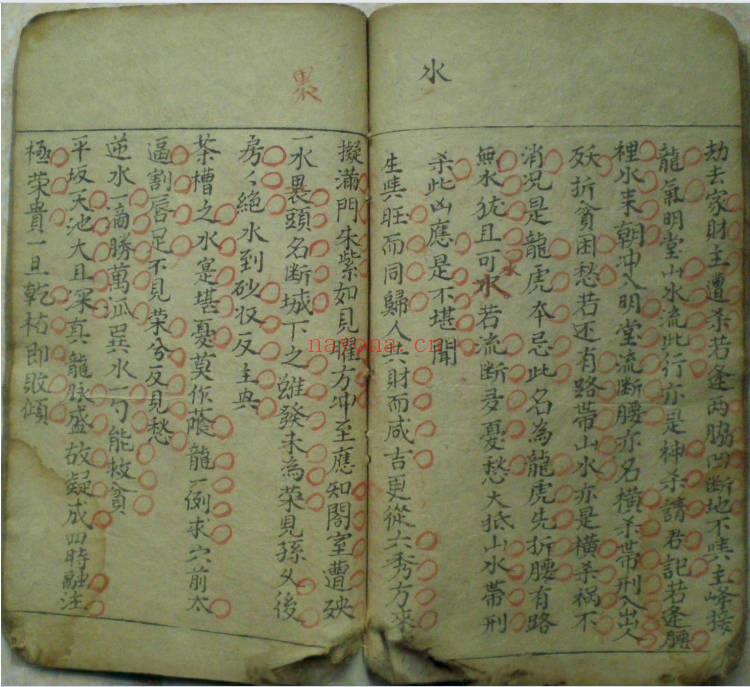 水
劫去家財主遭杀若逢两脇凹斷地不喫主峰接
龍氣明堂山水流此行亦是神杀請君記若逢腰
裡水来朝冲入明堂流斷腰亦名横杀帶刑入出人
殀折貧困愁若还有路帶山水亦是横杀祸不
消况是龍虎本忌此名為龍虎先折腰有路
無水犹且可水若流斷多憂愁大抵山水帶刑
水
杀此凶應是不堪聞
生喫旺而同歸人財而咸吉更從六秀方來
裹
擬滿門朱紫如見曜方冲至應知閤室遭殃
一水裹頭名斷城下之雖發未為荣見孫久後
房々絶水到砂收反主興
茶槽之水寔堪憂莫作蔭龍一例求穴前太
逼割唇足不見荣兮反見愁
逆水一滴勝萬派巽水一勺能救貧
平坂天池大且深真龍脉盛故凝成四時融注
極荣貴一旦乾枯即敗傾
nayona.cn